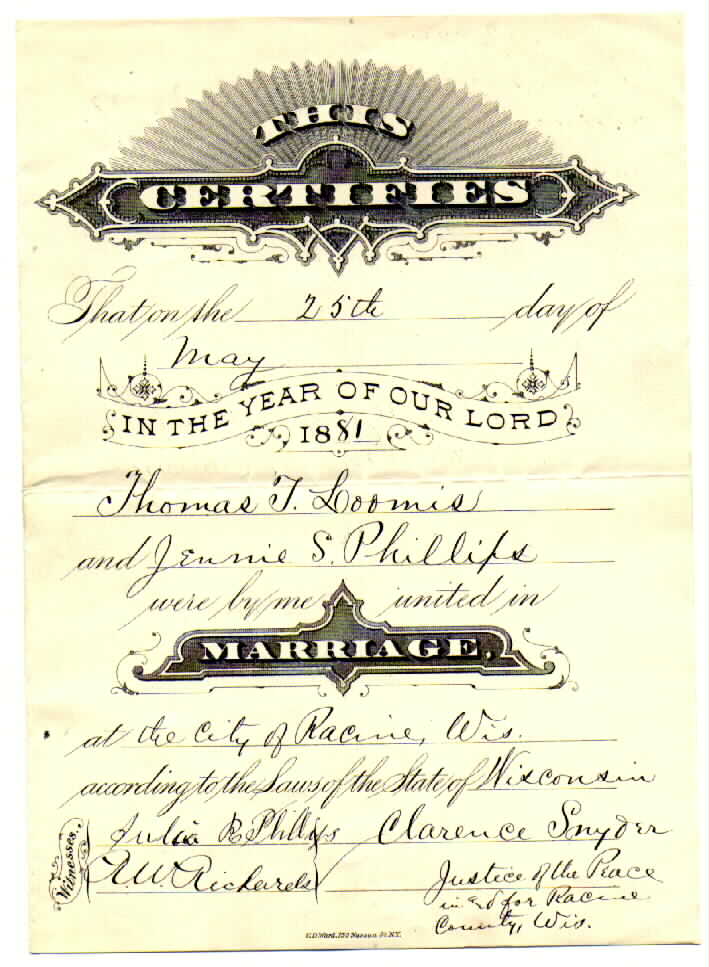 THIS
CERTIFIES
That on the 25th day of
May
IN THE YEAR OF OUR LORD
1881
Thomas T. Loomis
and Jennie S. Phillips
were by me united in
MARRIAGE,
at the City of Racine, Wis.
according to the Laws of the State of Wisconsin
Witnesses.
Julia B Phillips
Clarence Snyder
W. Richards
Justice of the Peace
in & for Racine
County, Wis.
C.D. Ward, 150 Nassau St. N.Y.